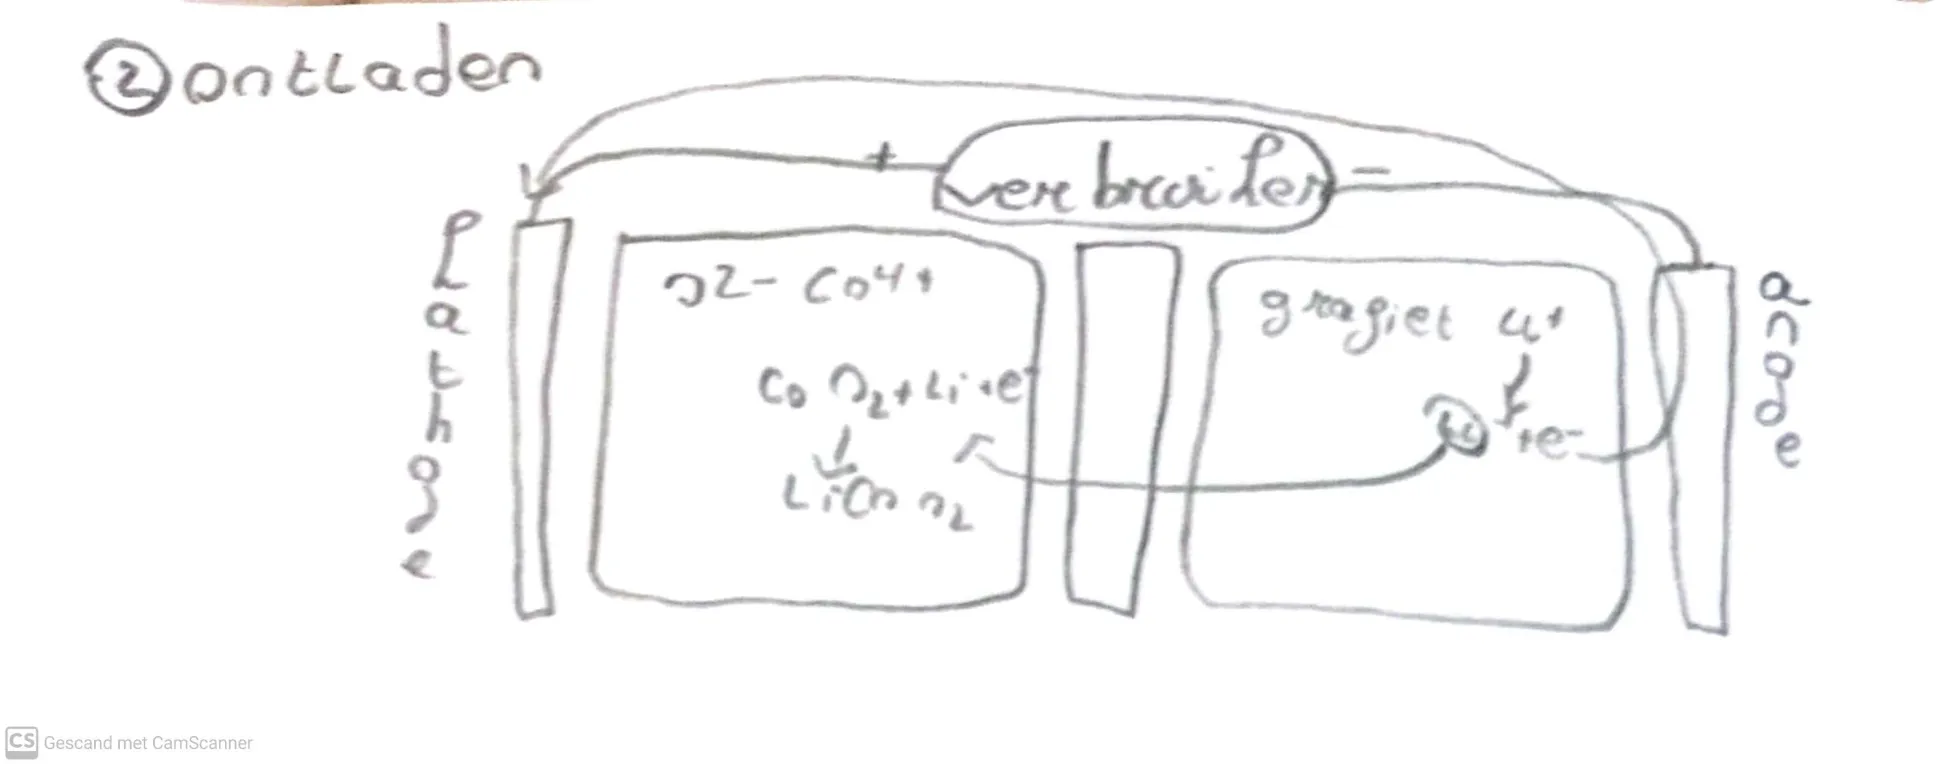 ② ontladen
+ verbruiker -
kathode
O2- CO4+
CoO2 + Li + e-
↓
LiCoO2
grafiet Li+
Li + e-
anode
CS Gescand met CamScanner